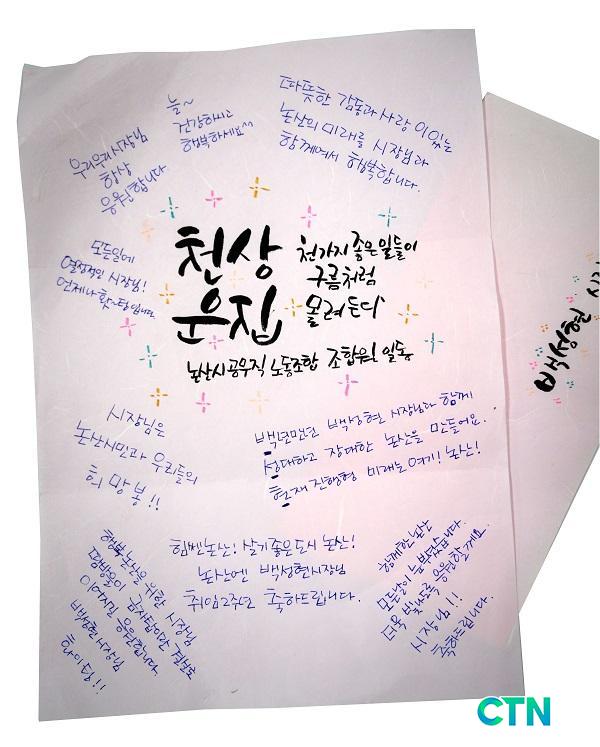 늘~
건강하시고
행복하세요^^
따뜻한 감동과 사랑이 있는
논산의 미래를 시장님과
함께여서 행복합니다.
우리우리시장님
항상
응원합니다.
모든일에
열정적인 시장님!
언제나 홧~팅입니다.
천상
운집
천가지 좋은일들이
구름처럼
몰려든다
논산시공무직 노동조합 조합원 일동
백성현 시장
시장님은
논산시민과 우리들의
희망봉!!
백년만년 백성현 시장님과 함께
성대하고 장대한 논산을 만들어요.
현재 진행형 미래는 여기! 논산!
힘쎈논산! 살기좋은도시 논산!
논산엔 백성현시장님
취임2주년 축하드립니다.
행복논산을 위한 시장님
땀방울이 금자탑같은 결실로
이어지길 응원합니다.
백성현 시장님
화이팅!!
함께한 논산
모든날이 눈부셨습니다.
더욱 빛나도록 응원할게요.
시장님!!
축하드립니다.
CTN